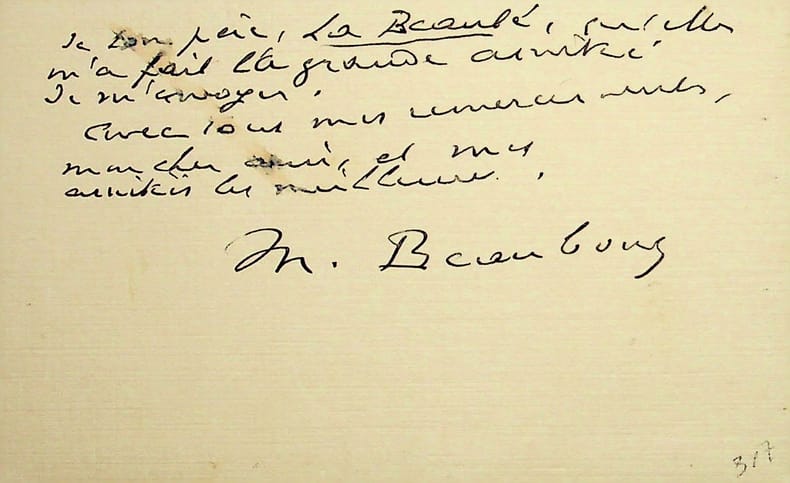 de son père, La Beauté, qu'elle
m'a fait la grande amitié
de m'envoyer.
Avec tous mes remerciements,
mon cher ami, et mes
amitiés les meilleures.
M. Beaubourg
317